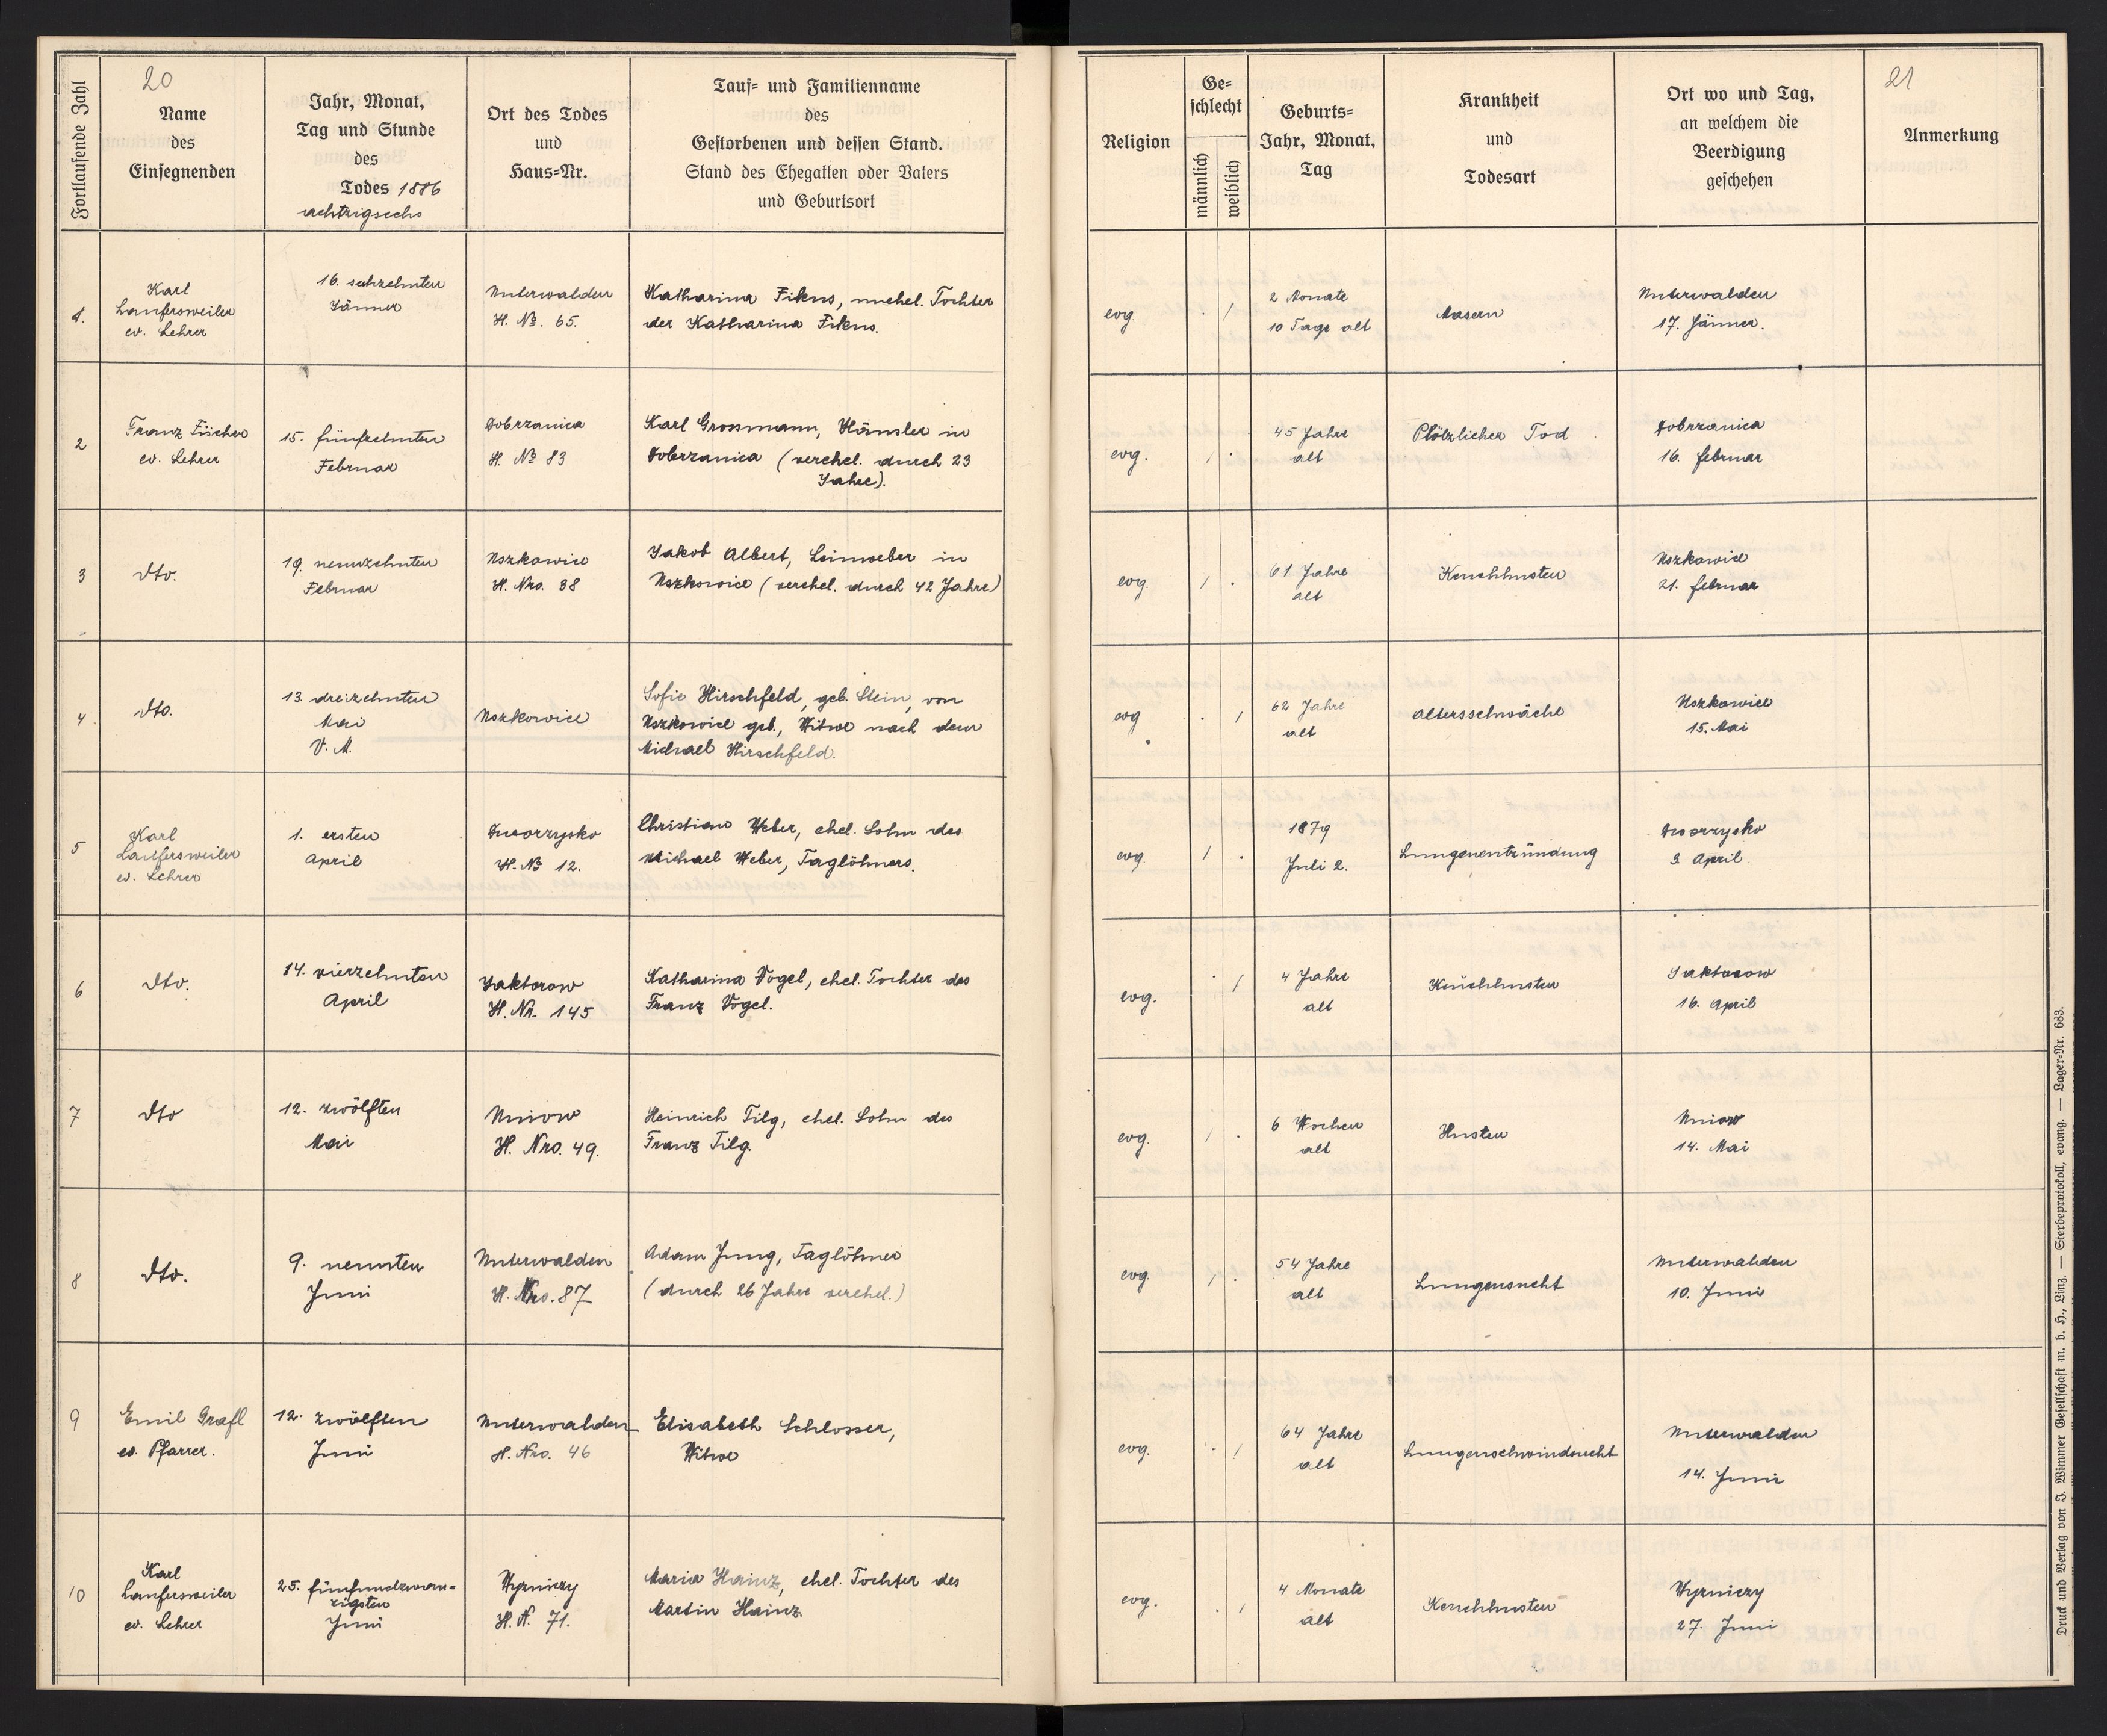 20
Fortlaufende Zahl
Name
des
Einsegnenden
Jahr, Monat,
Tag und Stunde
des
Todes 1886
achtzigsechs
Ort des Todes
und
Haus=Nr.
Tauf= und Familienname
des
Gestorbenen und dessen Stand.
Stand des Ehegatten oder Vaters
und Geburtsort
Religion
Ge=
schlecht
männlich
weiblich
Geburts=
Jahr, Monat,
Tag
Krankheit
und
Todesart
Ort wo und Tag,
an welchem die
Beerdigung
geschehen
21
Anmerkung
1.
Karl
Laufersweiler
ev. Lehrer
16. sechzehnten
Jänner
Unterwalden
H. No. 65.
Katharina Fikus, unehel. Tochter
der Katharina Fikus.
evg
. /
2 Monate
10 Tage alt
Masern
Unterwalden
17. Jänner.
2
Franz Fischer
ev. Lehrer
15. fünfzehnten
Februar
Dobrzanica
H. No 83
Karl Grossmann, Häusler in
Dobrzanica (verehel. durch 23
Jahre).
evg.
/ .
45 Jahre
alt
Plötzlicher Tod
Dobrzanica
16. Februar
3
dto.
19. neunzehnten
Februar
Uszkowice
H. Nro. 38
Jakob Albert, Leinweber in
Uszkowice (verehel. durch 42 Jahre)
evg.
/ .
61 Jahre
alt
Keuchhusten
Uszkowice
21. Februar
4.
dto.
13. dreizehnten
Mai
V. M.
Uszkowice
Sofie Hirschfeld, geb. Stein, von
Uszkowice geb., Witwe nach dem
Michael Hirschfeld.
evg
. /
62 Jahre
alt
Altersschwäche
Uszkowice
15. Mai
5
Karl
Laufersweiler
ev. Lehrer
1. ersten
April
Dworzysko
H. No 12.
Christian Weber, ehel. Sohn des
Michael Weber, Taglöhners.
evg.
/ .
1879
Juli 2.
Lungenentzündung
Dworzysko
3. April.
6
dto.
14. vierzehnten
April
Jaktorow
H. Nr. 145
Katharina Vogel, ehel. Tochter des
Franz Vogel.
evg.
. /
4 Jahre
alt
Keuchhusten
Jaktorow
16. April
7
dto
12. zwölften
Mai
Uniow
H. Nro. 49.
Heinrich Tilg, ehel. Sohn des
Franz Tilg.
evg.
/ .
6 Wochen
alt
Husten
Uniow
14. Mai
8
dto.
9. neunten
Juni
Unterwalden
H. Nro. 87
Adam Jung, Taglöhner
(durch 26 Jahre verehel.)
evg.
/ .
54 Jahre
alt
Lungensucht
Unterwalden
10. Juni
9
Emil Grafl
ev. Pfarrer.
12. zwölften
Juni
Unterwalden
H. Nro. 46
Elisabeth Schlosser,
Witwe
evg.
. /
64 Jahre
alt
Lungenschwindsucht
Unterwalden
14. Juni
10
Karl
Laufersweiler
ev. Lehrer
25. fünfundzwan=
zigsten
Juni
Wypniczy
H. N. 71.
Maria Hainz, ehel. Tochter des
Martin Hainz.
evg.
. /
4 Monate
alt
Keuchhusten
Wypniczy
27. Juni
Druck und Verlag von J. Wimmer Gesellschaft m. b. H., Linz. — Sterbeprotokoll, evang. — Lager=Nr. 683.